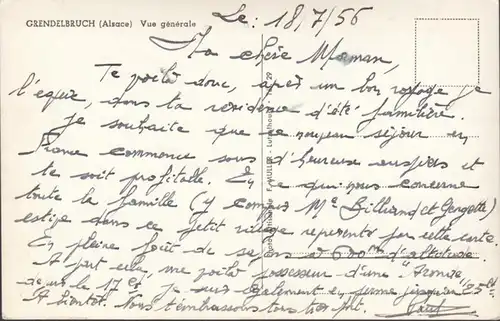 GRENDELBRUCH (Alsace) Vue générale
Le: 18/7/56
Ma chère Maman,
Te voilà donc, après un bon voyage je
l'espère, dans ta résidence d'été familière.
Je souhaite que ce nouveau séjour en
France commence sous d'heureux auspices et
te soit profitable. En ce qui nous concerne
toute la famille (y compris Me Gilliand et Georgette)
estive dans ce petit village représenté par cette carte
En pleine forêt de sapins à d'altitude
A part cela, me voilà possesseur d'une "Aronde"
depuis le 17 ct. Je suis également en ferme jusqu'au
A bientôt. Nous t'embrassons tous très fort. Paul